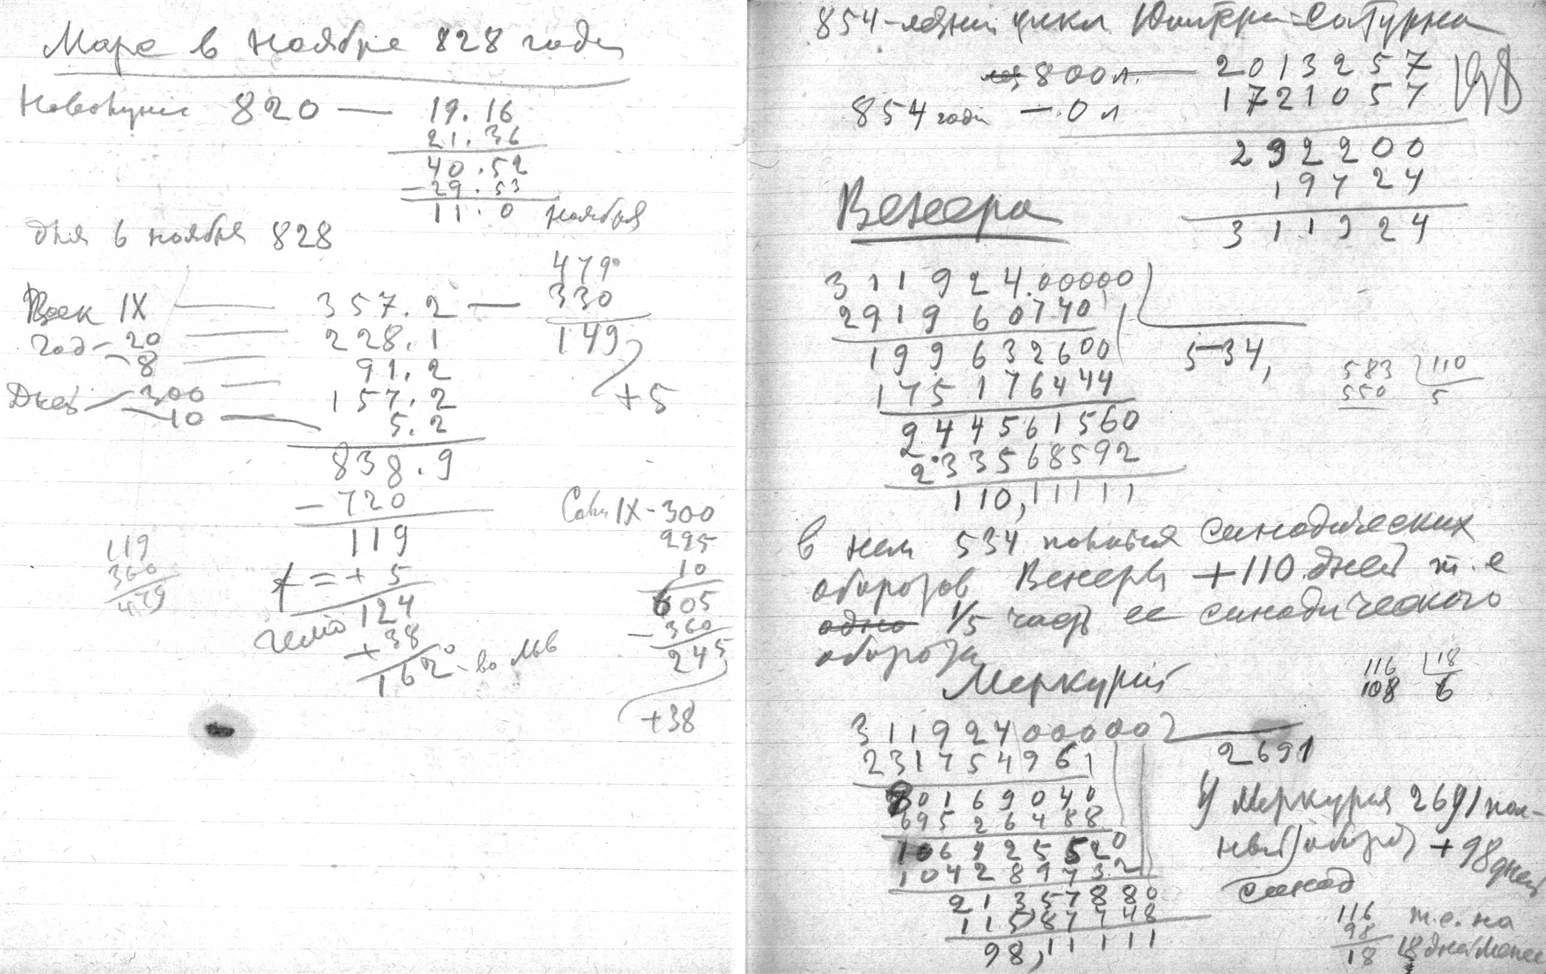 Марс в ноябре 828 года
Новолуние 820 — 19.16
21.36
40.52
-29.53
11.0 ноября
Для 6 ноября 828
Век IX — 357.2 —
479°
330
149
+5
год - 20 — 228.1
8 — 91.2
Дней 300 — 157.2
10 — 5.2
838.9
- 720
119
+ 5
124
+38
162° - во Льве
119
360
479
IX - 300
295
10
605
- 360
245
+38
854-летний цикл Юпитера-Сатурна
800 л. — 2013257
854 года — 0 л 1721057
98
292200
19724
311924
Венера
311924.00000
291960740
534,
199632600
175176444
244561560
233568592
110,11111
583 110
550 5
в нем 534 полных синодических
оборотов Венеры +110 дней т.е
одно 1/5 часть ее синодического
оборота
116 18
108 6
Меркурий
31192400000
231754961
2691
80169040
69526488
106425520
104289732
21357880
11587748
98,11111
У Меркурия 2691 пол-
ный оборот + 98 дней
синод
116 т.е. на
98
18 18 дней менее